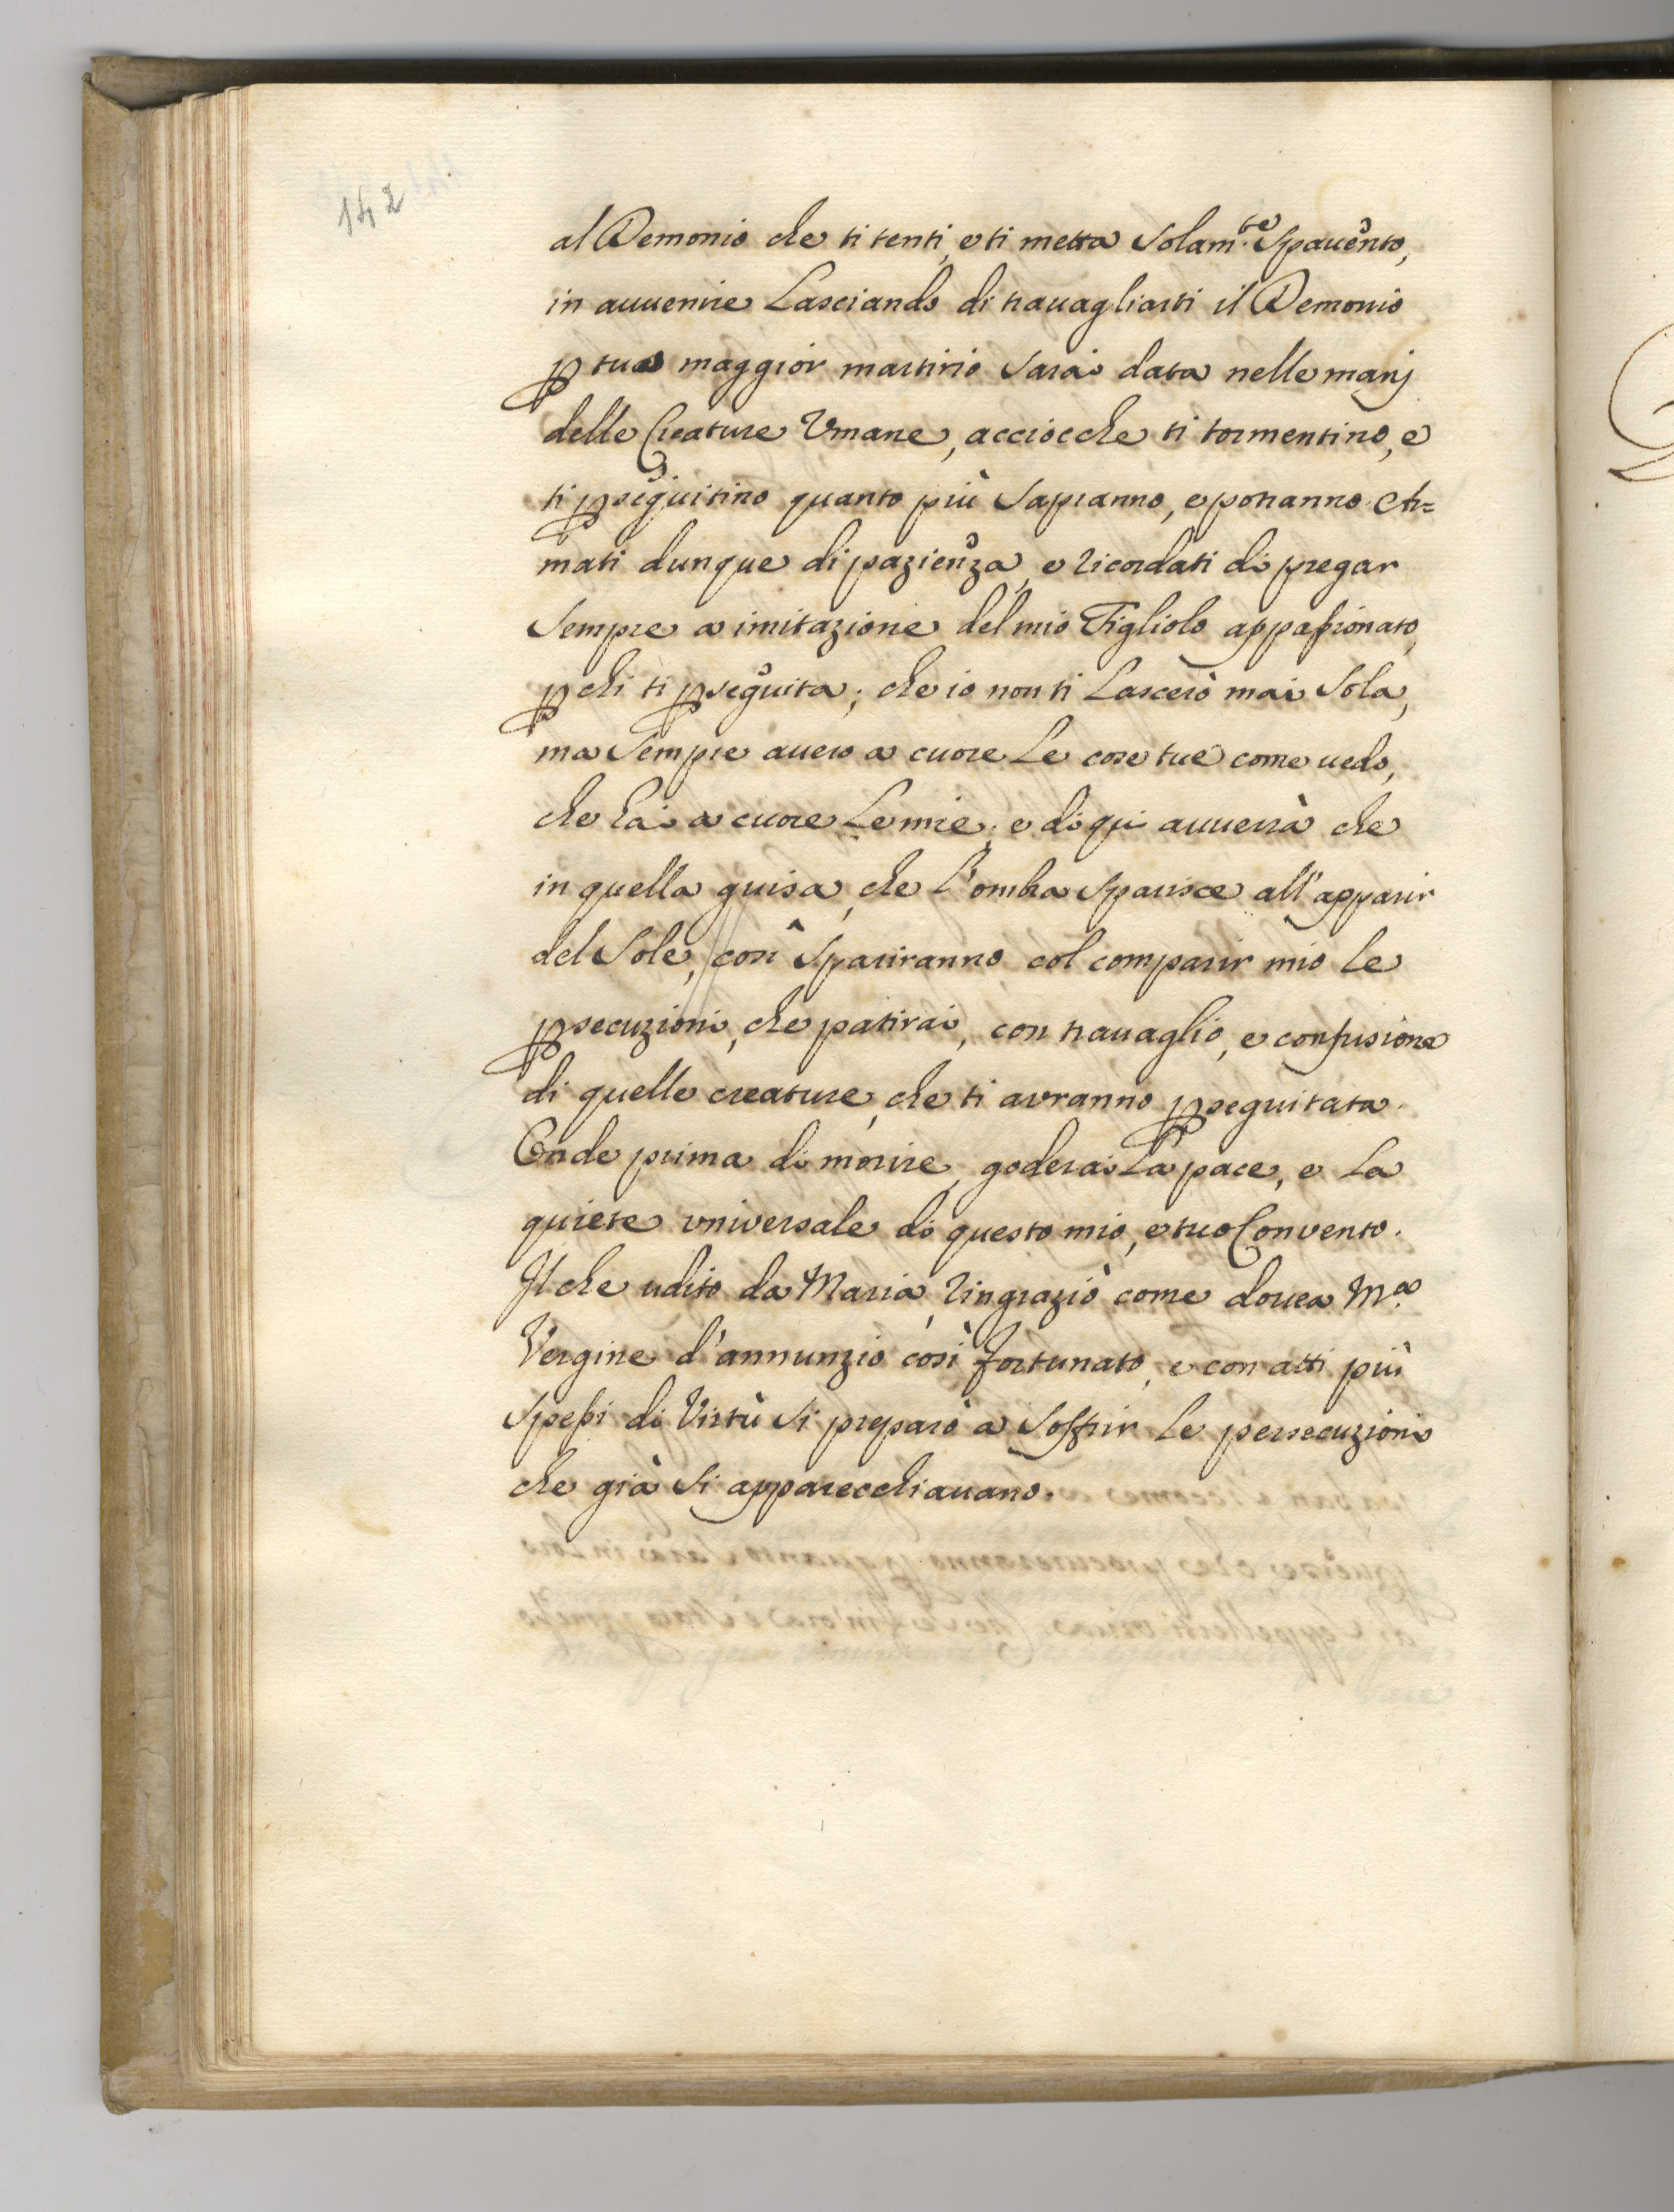 142
al Demonio che ti tenti, e ti metta solam.te spauento,
in auuenire lasciando di trauagliarti il Demonio
p tuo maggior martirio sarai data nelle manj
delle Creature Vmane, acciocche ti tormentino, e
ti pseguitino quanto più sapranno, e potranno. Ar=
mati dunque di pazienza, e ricordati di pregar
sempre a imitazione del mio Figliolo appassionato,
p chi ti pseguita; che io non ti lascerò mai sola,
ma sempre auero a cuore le cose tue come uedo,
che hai a cuore le mie; e di qui auuerrà che
in quella guisa, che l'ombra sparisce all'apparir
del sole, così spariranno col comparir mio le
psecuzioni, che patirai, con trauaglio, e confusione
di quelle creature, che ti avranno pseguitata.
Onde prima di morire, goderai la pace, e la
quiete vniversale di questo mio, e tuo Convento.
Il che udito da Maria, ringraziò come douea M.a
Vergine d'annunzio così fortunato, e con atti più
spessi di Virtù si preparò a soffrir le persecuzioni
che già si apparecchiauano.